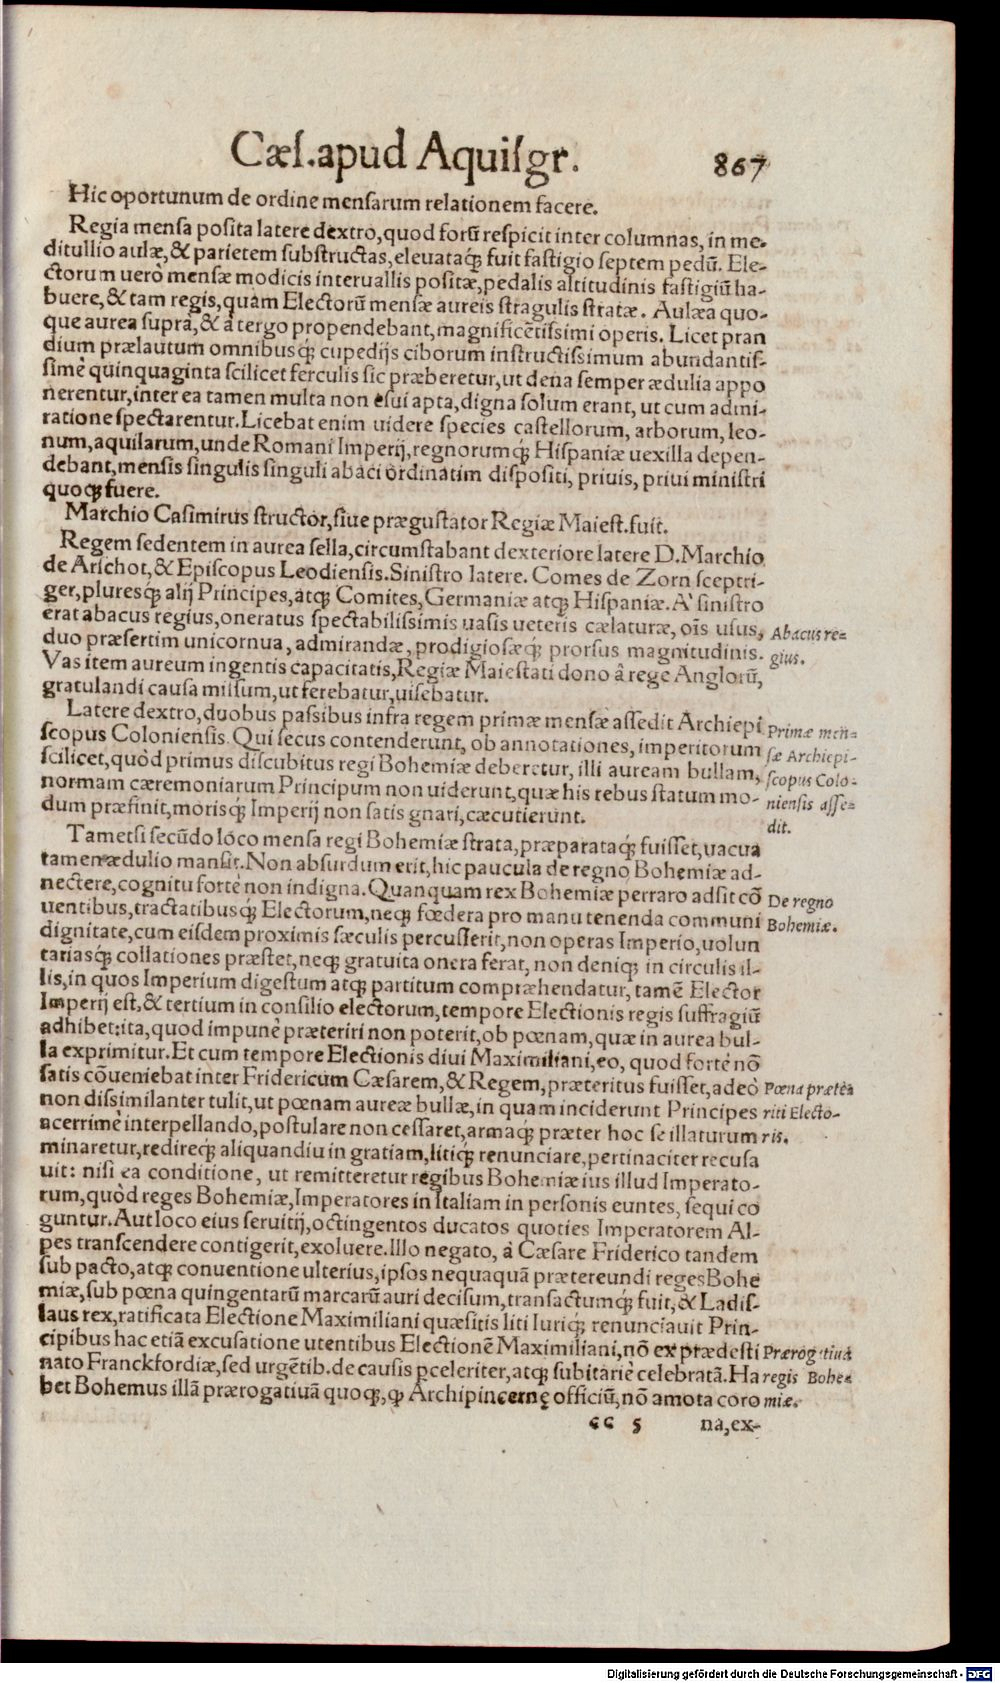 Cæſ.apud Aquiſgr. 867
Hic oportunum de ordine mensarum relationem facere.
Regia mensa posita latere dextro,quod forũ respicit inter columnas, in me-
ditullio aulæ,& parietem substructas,eleuataq́; fuit fastigio septem pedũ. Ele-
ctorum uerò mensæ modicis interuallis positæ,pedalis altitudinis fastigiũ ha-
buere,& tam regis,quàm Electorũ mensæ aureis stragulis stratæ. Aulæa quo-
que aurea suprà,& à tergo propendebant,magnificẽtissimi operis. Licet pran
dium prælautum omnibusq́; cupedijs ciborum instructissimum abundantis-
simè quinquaginta scilicet ferculis sic præberetur,ut dena semper ædulia appo
nerentur,inter ea tamen multa non esui apta,digna solum erant, ut cum admi-
ratione spectarentur.Licebat enim uidere species castellorum, arborum, leo-
num,aquilarum,unde Romani Imperij,regnorumq́; Hispaniæ uexilla depen-
debant,mensis singulis singuli abaci ordinatim dispositi, priuis, priui ministri
quoq; fuere.
Marchio Casimirus structor,siue prægustator Regiæ Maiest.fuit.
Regem sedentem in aurea sella,circumstabant dexteriore latere D.Marchio
de Arschot,& Episcopus Leodiensis.Sinistro latere. Comes de Zorn sceptri-
ger,pluresq́; alij Principes,atq; Comites,Germaniæ atq; Hispaniæ. A` sinistro
erat abacus regius,oneratus spectabilissimis uasis ueteris cælaturæ, oĩs usus,
Abacus re=
duo præsertim unicornua, admirandæ, prodigiosæq́; prorsus magnitudinis.
gius.
Vas item aureum ingentis capacitatis,Regiæ Maiestati dono â rege Anglorũ,
gratulandi causa missum,ut ferebatur,uisebatur.
Latere dextro,duobus passibus infra regem primæ mensæ assedit Archiepi
Primæ men=
scopus Coloniensis. Qui secus contenderunt, ob annotationes, imperitorum
sæ Archiepi-
scilicet,quòd primus discubitus regi Bohemiæ deberetur, illi auream bullam,
scopus Colo-
normam cæremoniarum Principum non uiderunt,quæ his rebus statum mo-
niensis asse=
dum præfinit,morisq́; Imperij non satis gnari,cæcutierunt.
dit.
Tametsi secũdo loco mensa regi Bohemiæ strata,præparataq́; fuisset,uacua
tamen ædulio mansit.Non absurdum erit,hic paucula de regno Bohemiæ ad-
nectere,cognitu fortè non indigna.Quanquam rex Bohemiæ perraro adsit cõ
De regno
uentibus,tractatibusq́; Electorum,neq; fœdera pro manu tenenda communi
Bohemiæ.
dignitate,cum eisdem proximis sæculis percusserit,non operas Imperio,uolun
tariasq́; collationes præstet,neq; gratuita onera ferat, non deniq; in circulis il-
lis,in quos Imperium digestum atq; partitum compræhendatur, tamẽ Elector
Imperij est,& tertium in consilio electorum,tempore Electionis regis suffragiũ
adhibet:ita,quod impunè præteriri non poterit,ob pœnam,quæ in aurea bul-
la exprimitur.Et cum tempore Electionis diui Maximiliani,eo, quod fortè nõ
satis cõueniebat inter Fridericum Cæsarem,& Regem,præteritus fuisset,adeò
Pœna præte=
non dissimilanter tulit,ut pœnam aureæ bullæ,in quam inciderunt Principes
riti Electo-
acerrimè interpellando,postulare non cessaret,armaq́; præter hoc se illaturum
ris.
minaretur,redireq́; aliquandiu in gratiam,litiq́; renunciare,pertinaciter recusa
uit: nisi ea conditione, ut remitteretur regibus Bohemiæ ius illud Imperato-
rum,quòd reges Bohemiæ,Imperatores in Italiam in personis euntes, sequi co
guntur.Aut loco eius seruitij,octingentos ducatos quoties Imperatorem Al-
pes transcendere contigerit,exoluere.Illo negato, à Cæsare Friderico tandem
sub pacto,atq; conuentione ulterius,ipsos nequaquã prætereundi reges Bohe
miæ,sub pœna quingentarũ marcarũ auri decisum,transactumq́; fuit,& Ladis-
laus rex,ratificata Electione Maximiliani quæsitis liti Iuriq́; renunciauit Prin-
cipibus hac etiã excusatione utentibus Electionẽ Maximiliani,nõ ex prædesti
Prærogatiua
nato Franckfordiæ,sed urgẽtib.de causis ꝑceleriter,atq; subitariè celebratã.Ha
regis Bohe=
bet Bohemus illã prærogatiuã quoq;,ꝙ Archipincernę officiũ,nõ amota coro
miæ.
cc 5 na,ex-
Digitalisierung gefördert durch die Deutsche Forschungsgemeinschaft - DFG